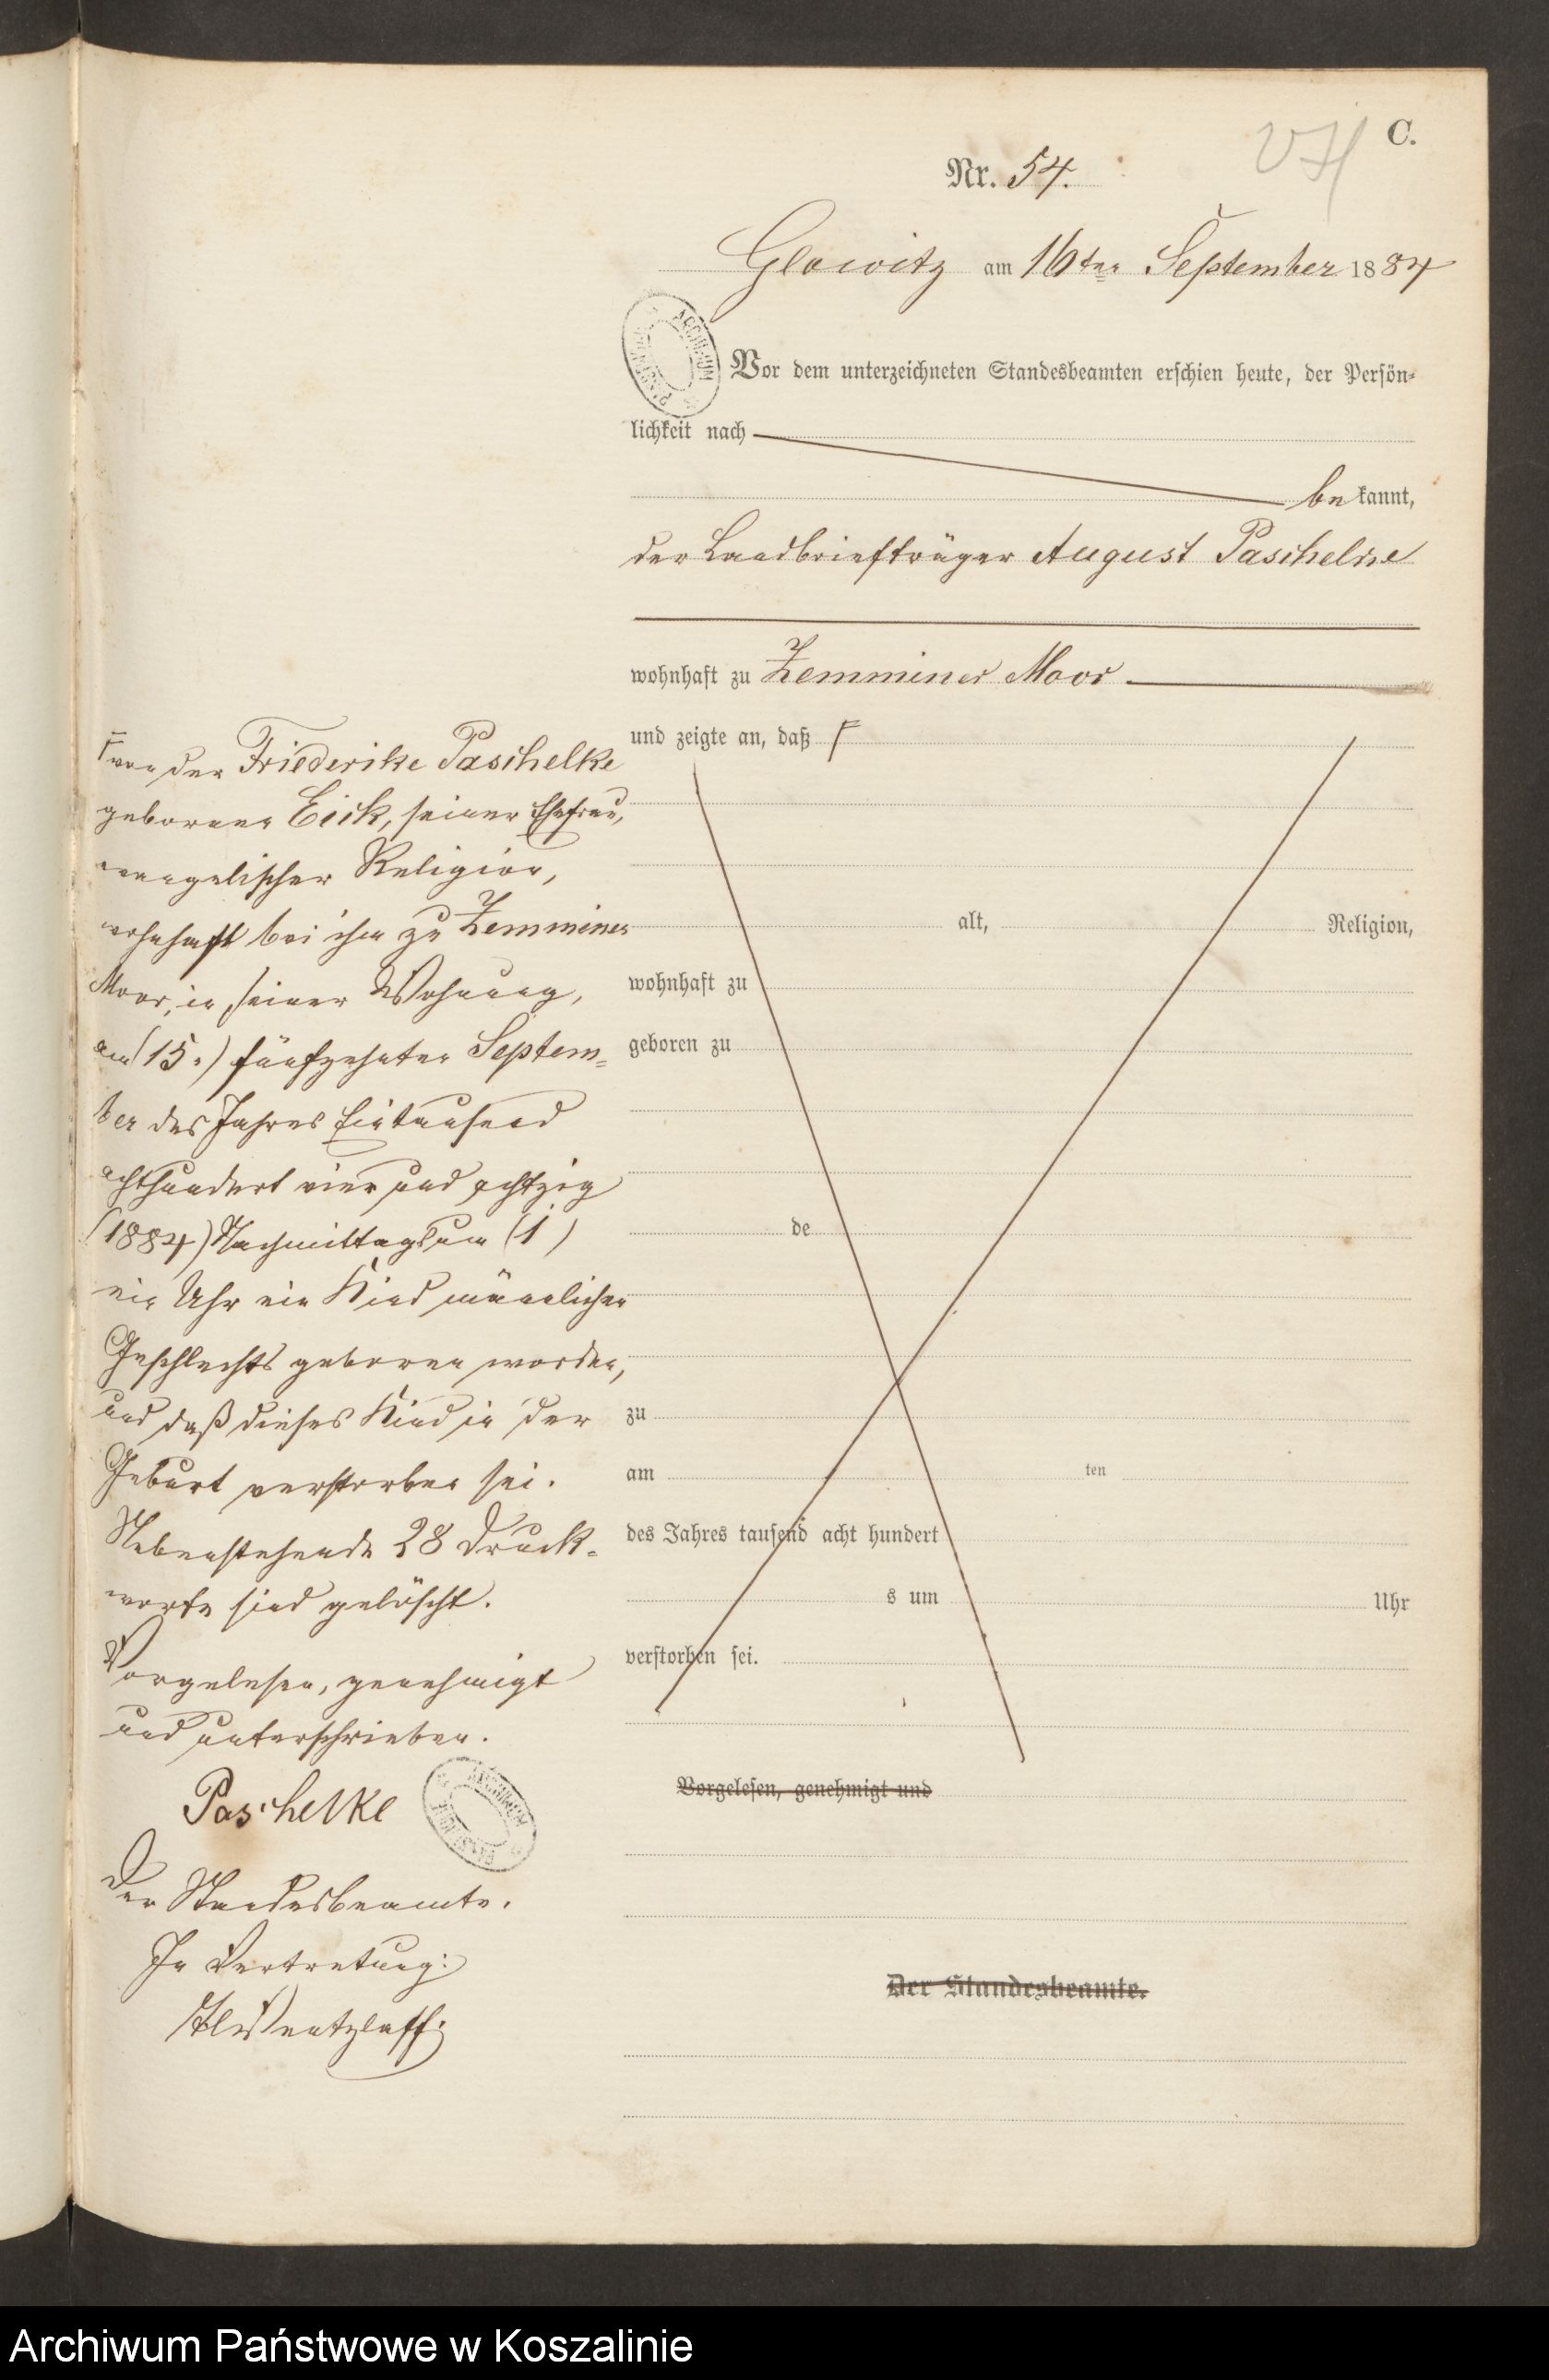 C.
VH
Nr. 54.
Glowitz am 16ten September 1884
Vor dem unterzeichneten Standesbeamten erschien heute, der Persön-
lichkeit nach
bekannt,
der Landbriefträger August Paschelke
wohnhaft zu Zemminer Moor
und zeigte an, daß Γ
Γ von der Friederike Paschelke
geborenen Eick, seiner Ehefrau,
evangelischer Religion,
wohnhaft bei ihm zu Zemminer
Moor, in seiner Wohnung,
am (15.) fünfzehnten Septem-
ber des Jahres Eintausend
achthundert vier und achtzig
(1884) Nachmittags um (1)
ein Uhr ein Kind männlichen
Geschlechts geboren worden,
und daß dieses Kind in der
Geburt verstorben sei.
Nebenstehende 28 Druck-
worte sind gelöscht.
Vorgelesen, genehmigt
und unterschrieben.
Paschelke
Der Standesbeamte.
In Vertretung:
alt, Religion,
wohnhaft zu
geboren zu
de
zu
am ten
des Jahres tausend acht hundert
s um Uhr
verstorben sei.
Vorgelesen, genehmigt und
Der Standesbeamte.
ARCHIWUM
Archiwum Państwowe w Koszalinie